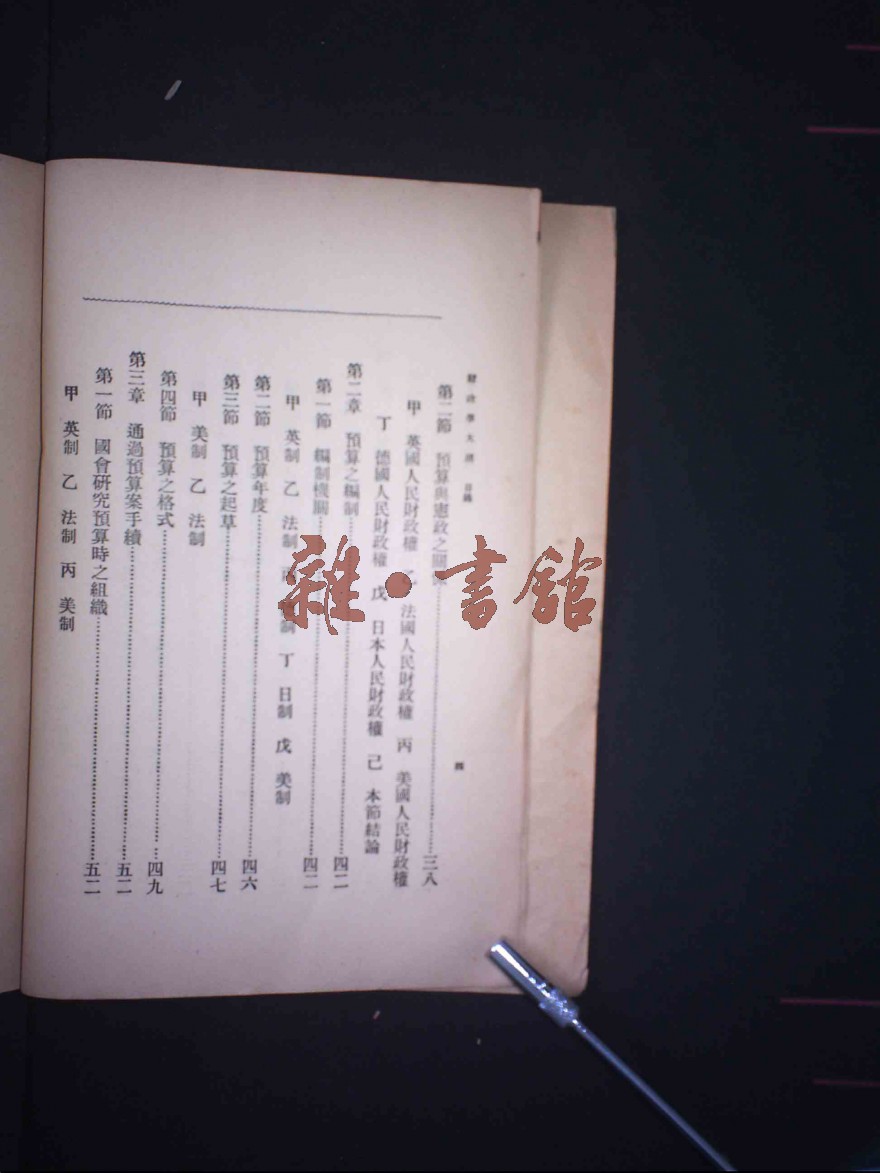 財政學大綱 目錄
四
第二節 預算與憲政之關係……三八
甲 英國人民財政權 乙 法國人民財政權 丙 美國人民財政權
丁 德國人民財政權 戊 日本人民財政權 己 本節結論
第二章 預算之編制……四二
第一節 編制機關……四二
甲 英制 乙 法制 丙 制 丁 日制 戊 美制
第二節 預算年度……四六
第三節 預算之起草……四七
甲 美制 乙 法制
第四節 預算之格式……四九
第三章 通過預算案手續……五二
第一節 國會研究預算時之組織……五二
甲 英制 乙 法制 丙 美制
雜·書館